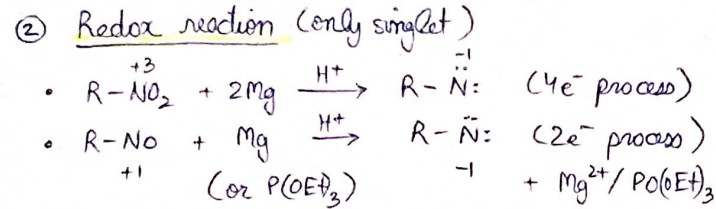 ② Redox reaction (only singlet)
+3 -1
• R-NO₂ + 2Mg H+ → R-N̈: (4e⁻ process)
• R-NO + Mg H+ → R-N̈: (2e⁻ process)
+1 (or P(OEt)₃) -1 + Mg²⁺/PO(OEt)₃